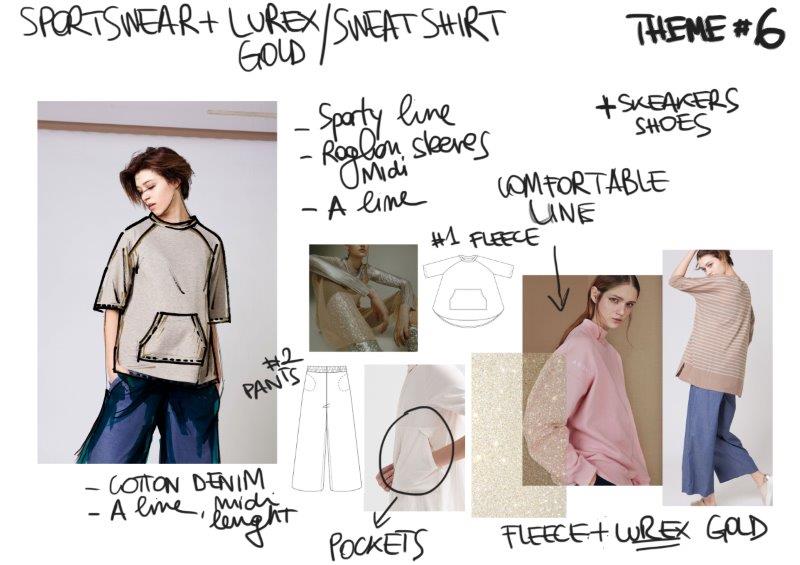 SPORTSWEAR + LUREX/SWEATSHIRT
GOLD
THEME #6
- Sporty line
- Raglan sleeves
Midi
- A line
+ SKEAKERS
SHOES
COMFORTABLE
LINE
#1 FLEECE
#2
PANTS
- COTTON DENIM
- A line, midi
lenght
POCKETS
FLEECE + LUREX GOLD